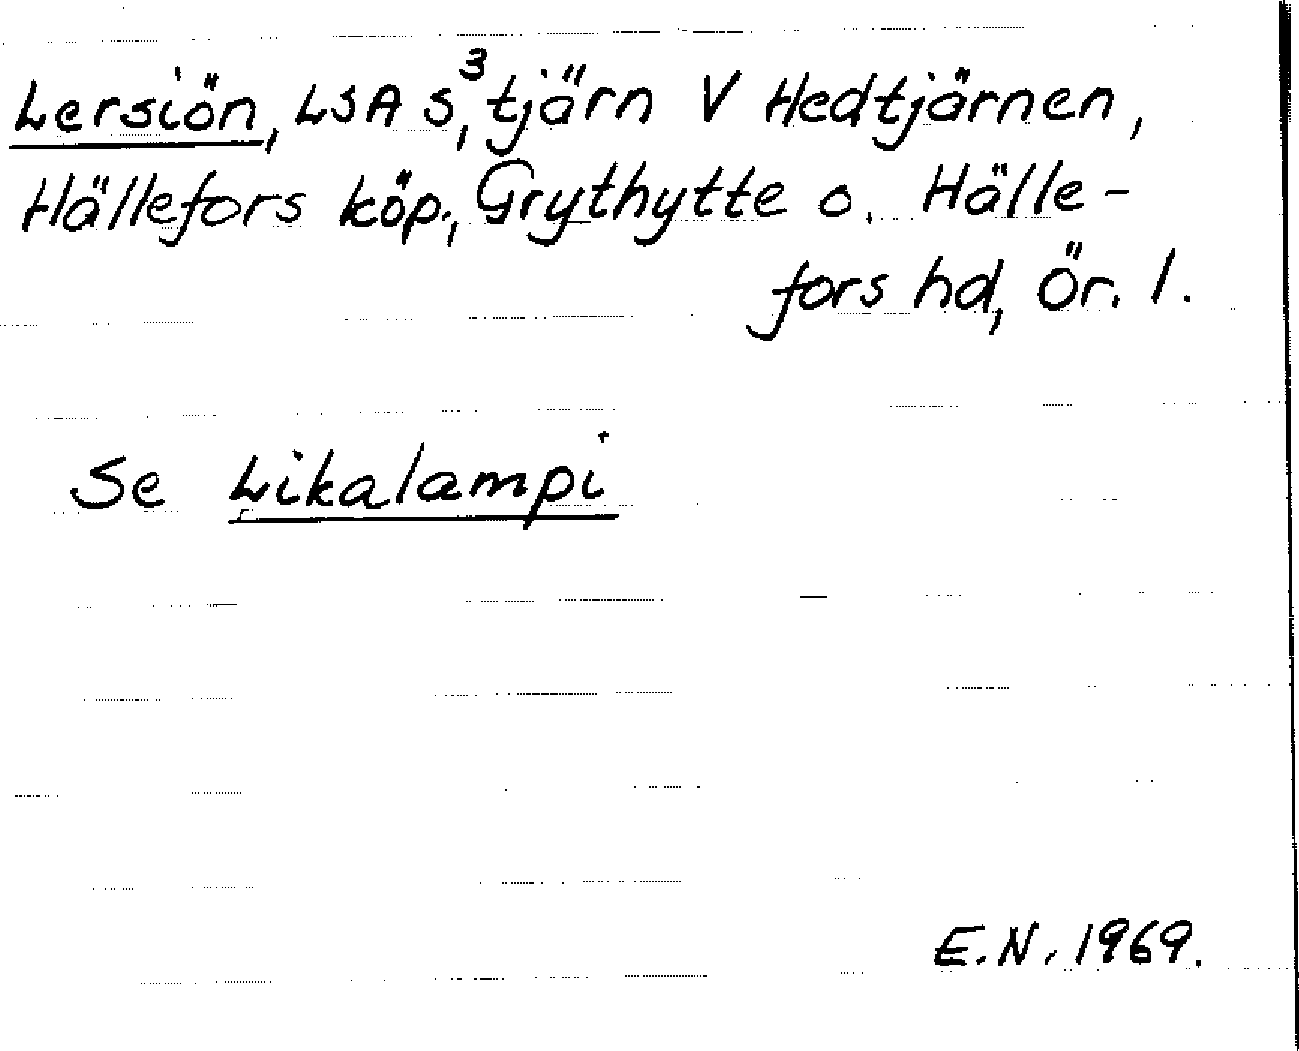 Lersiön, LSA S³, tjärn V Hedtjärnen,
Hällefors köp., Grythytte o. Hälle-
fors hd, Ör. l.
Se Likalampi
E.N. 1969.